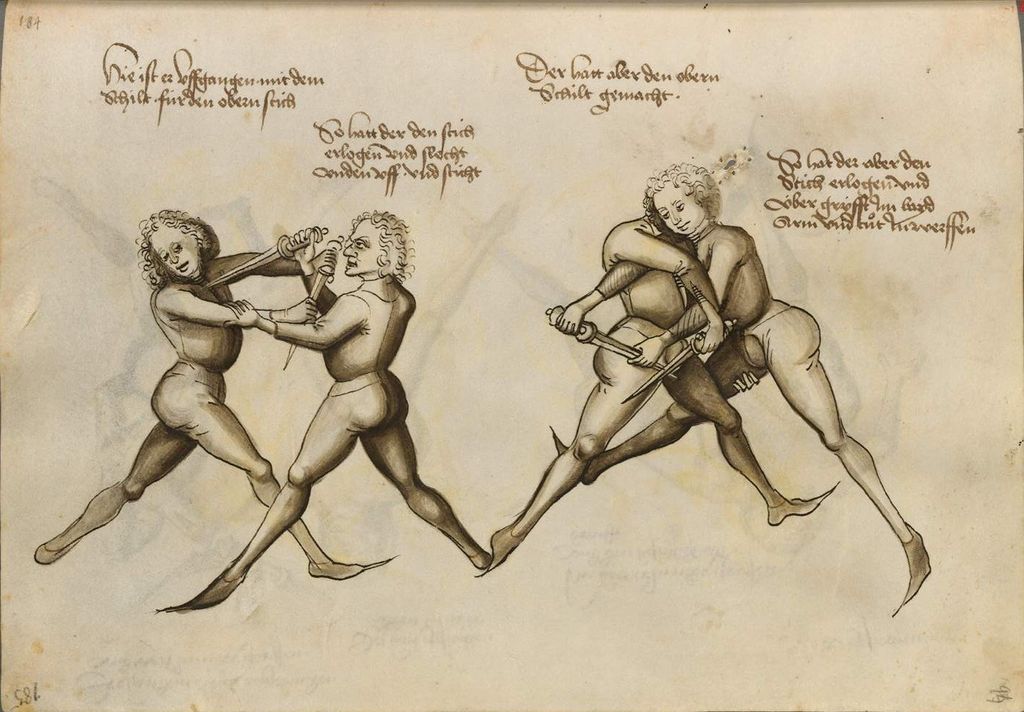 184
Hie ist er vffgangen mit dem
Schilt für den obern stich
So hatt der den stich
erlogen vnd slecht
vnden vff vnd sticht
Der hatt aber den obern
Schilt gemacht.
So hat der aber den
Stich erlogen vnd
über gryfft Im bayd
Arm vnd tůt Im werffen
185